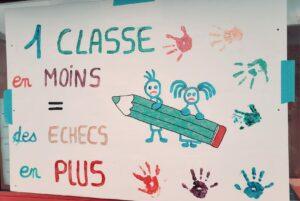 1 CLASSE
en MOINS
=
des ECHECS
en PLUS